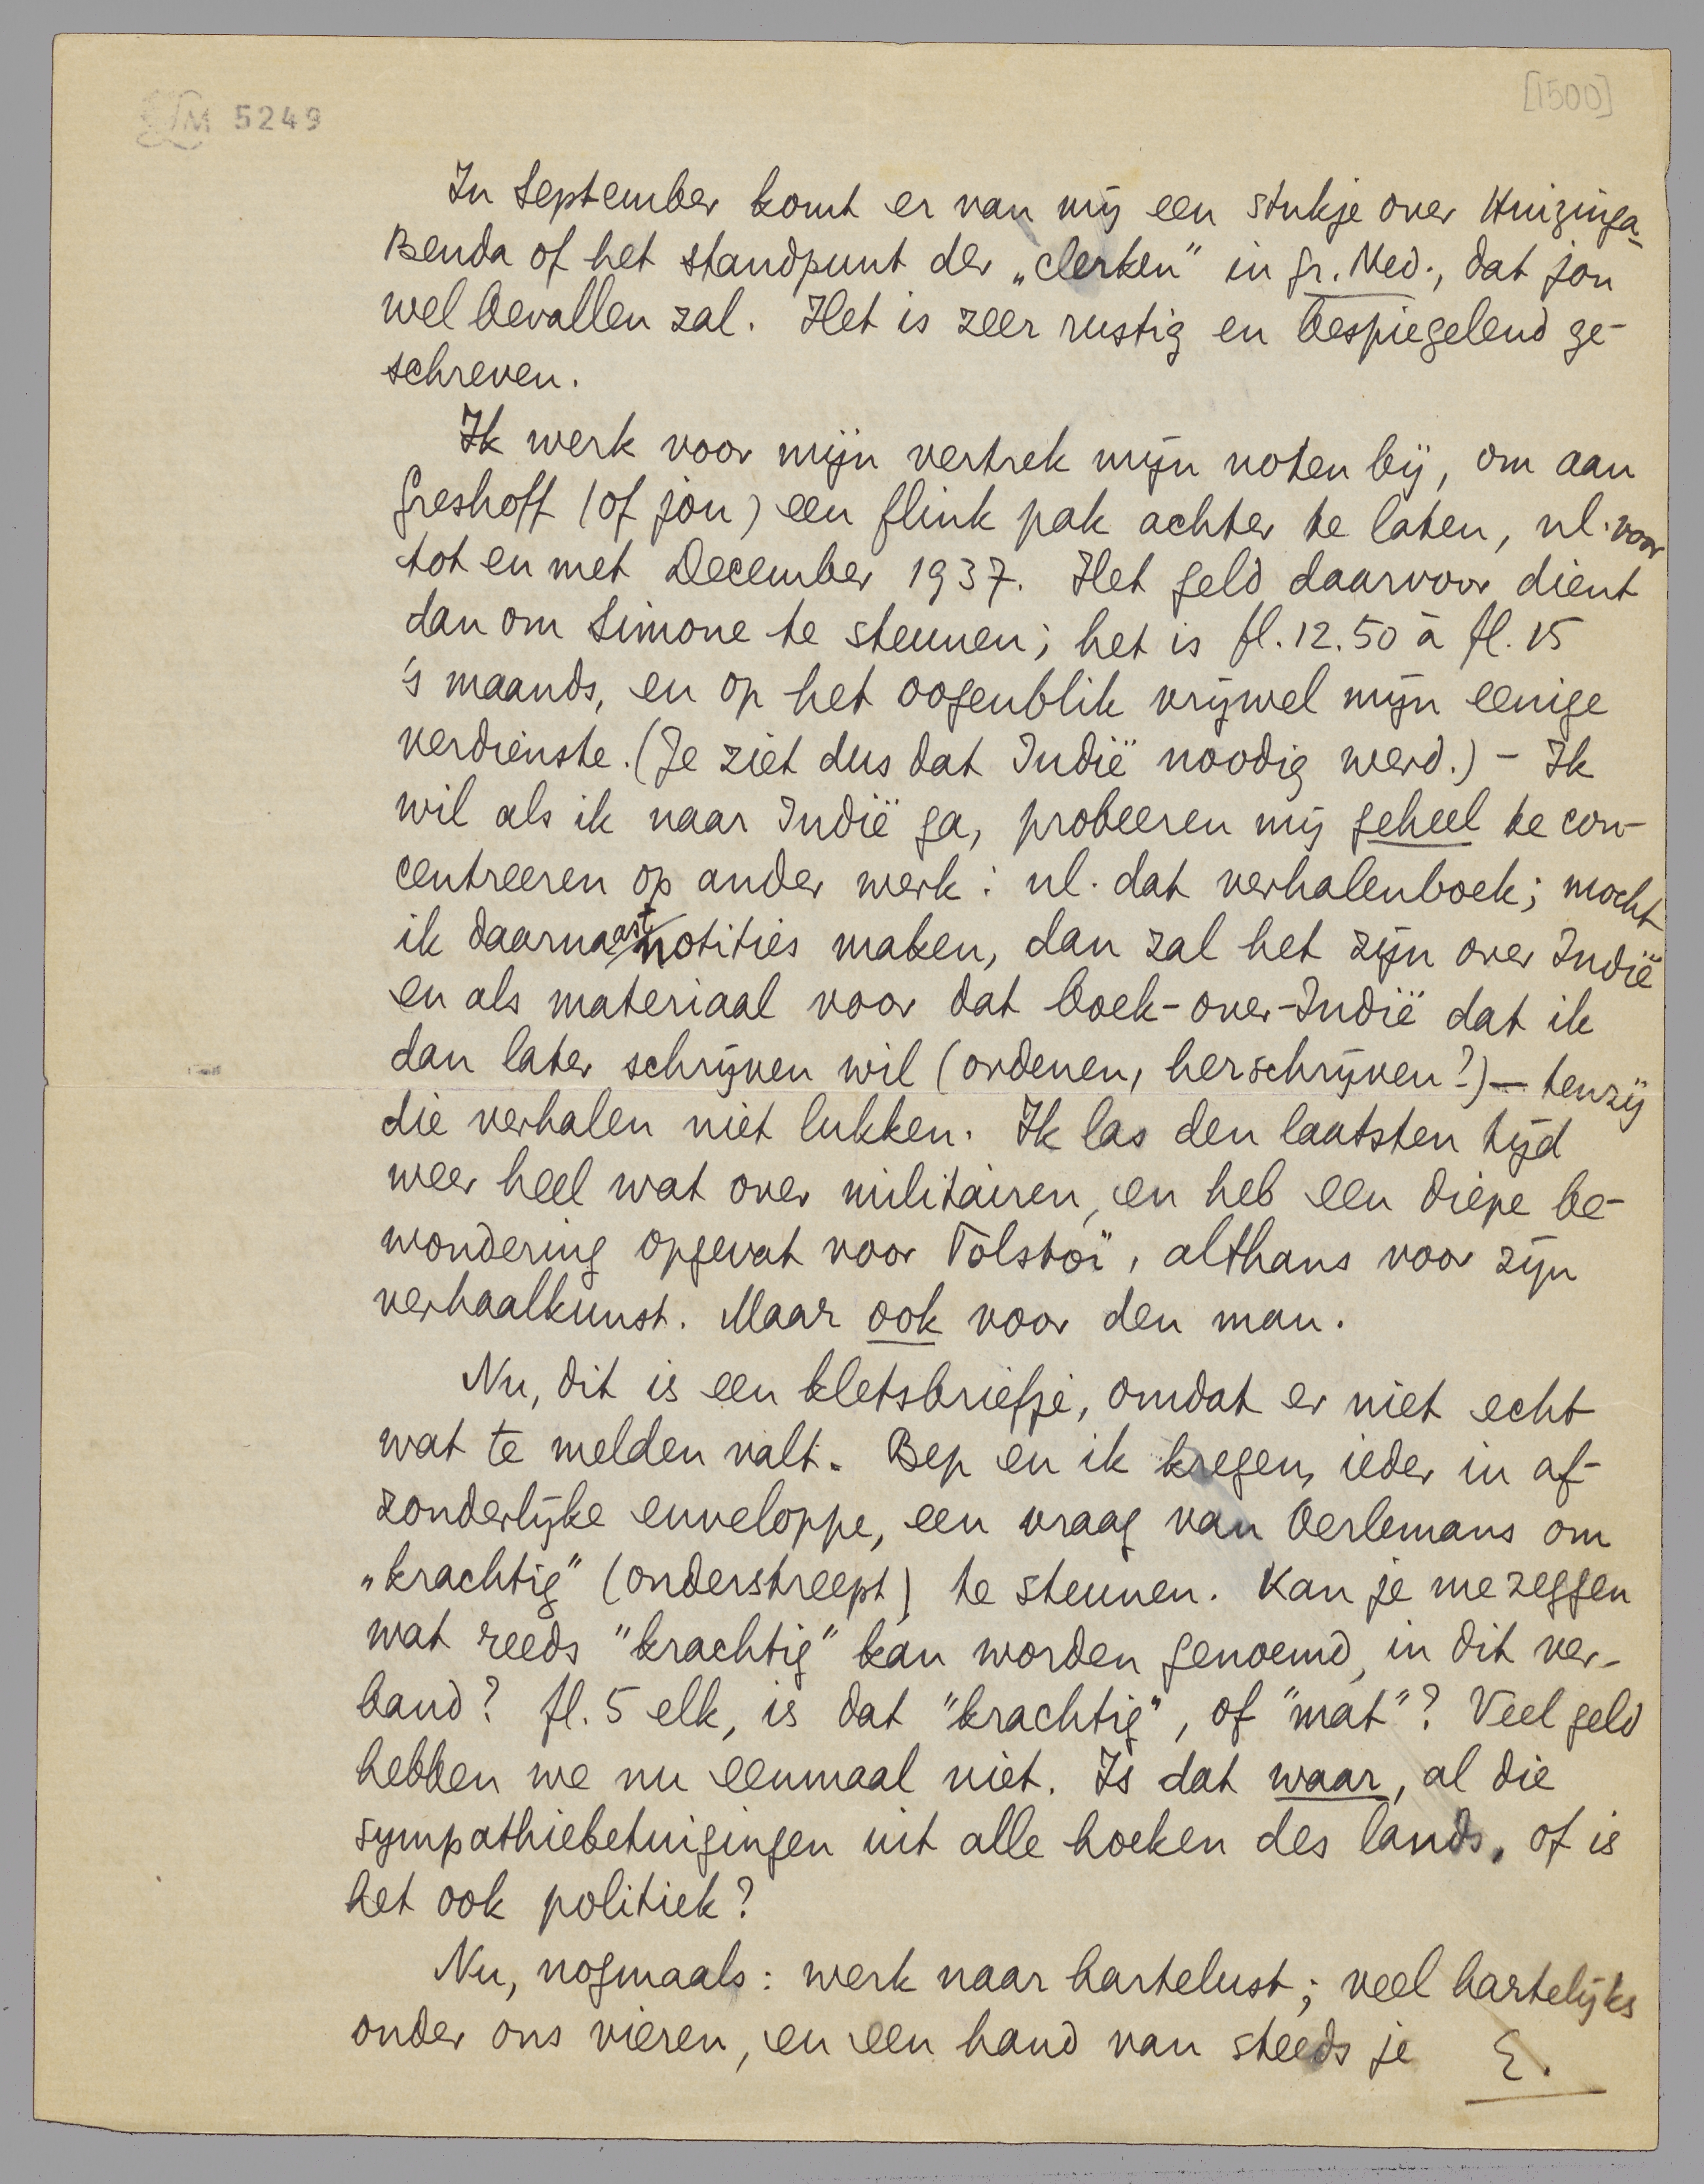 LM 5249
[1500]
In September komt er van mij een stukje over Huizinga-
Benda of het standpunt der „clerken" in Gr. Ned., dat jou
wel bevallen zal. Het is zeer rustig en bespiegelend ge-
schreven.
Ik werk voor mijn vertrek mijn noten bij, om aan
Greshoff (of jou) een flink pak achter te laten, nl. voor
tot en met December 1937. Het geld daarvoor dient
dan om Simone te steunen; het is fl. 12.50 à fl. 15
's maands, en op het oogenblik vrijwel mijn eenige
verdienste. (Je ziet dus dat Indië noodig werd.) – Ik
wil als ik naar Indië ga, probeeren mij geheel te con-
centreeren op ander werk: nl. dat verhalenboek; mocht
ik daarnaast notities maken, dan zal het zijn over Indië
en als materiaal voor dat boek-over-Indië dat ik
dan later schrijven wil (ordenen, herschrijven?) — tenzij
die verhalen niet lukken. Ik las den laatsten tijd
weer heel wat over militairen, en heb een diepe be-
wondering opgevat voor Tolstoï, althans voor zijn
verhaalkunst. Maar ook voor den man.
Nu, dit is een kletsbriefje, omdat er niet echt
wat te melden valt. Bep en ik kregen, ieder in af-
zonderlijke enveloppe, een vraag van Oerlemans om
„krachtig" (onderstreept) te steunen. Kan je me zeggen
wat reeds "krachtig" kan worden genoemd, in dit ver-
band? fl. 5 elk, is dat "krachtig", of "mat"? Veel geld
hebben we nu eenmaal niet. Is dat waar, al die
sympathiebetuigingen uit alle hoeken des lands, of is
het ook politiek?
Nu, nogmaals: werk naar hartelust; veel hartelijks
onder ons vieren, en een hand van steeds je E.